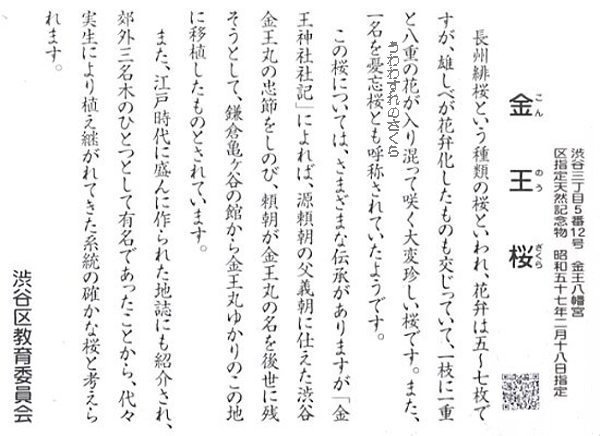 渋谷三丁目5番12号　金王八幡宮
区指定天然記念物　昭和五十七年二月十八日指定
金王桜
こんのうざくら
長州緋桜という種類の桜といわれ、花弁は五～七枚で
すが、雄しべが花弁化したものも交じっていて、一枝に一重
と八重の花が入り混って咲く大変珍しい桜です。また、
一名を憂忘桜とも呼称されていたようです。
うわわすれのさくら
この桜については、さまざまな伝承がありますが「金
王神社社記」によれば、源頼朝の父義朝に仕えた渋谷
金王丸の忠節をしのび、頼朝が金王丸の名を後世に残
そうとして、鎌倉亀ヶ谷の館から金王丸ゆかりのこの地
に移植したものとされています。
また、江戸時代に盛んに作られた地誌にも紹介され、
郊外三名木のひとつとして有名であったことから、代々
実生により植え継がれてきた系統の確かな桜と考えら
れます。
渋谷区教育委員会